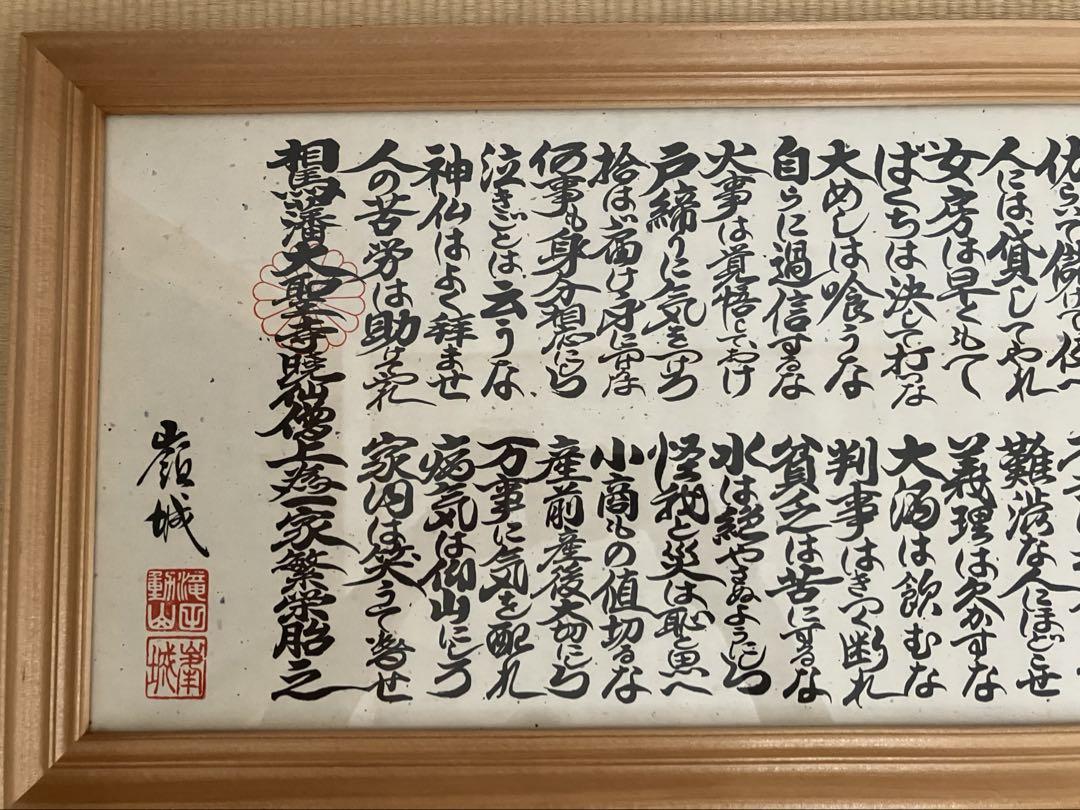 仂らいて儲けて使へ
人には貸してやれ
難渋な人にほどこせ
女房は早くもて
義理は欠かすな
ばくちは決して打つな
大酒は飲むな
大めしは喰うな
判事はきつく断れ
自らに過信するな
貧乏は苦にするな
火事は覚悟しておけ
水は絶やさぬようにしろ
戸締りに気をつけろ
怪我と災は恥と思へ
拾はゞ届け身に付けるな
小商もの値切るな
何事も身分相応にしろ
産前産後大切にしろ
泣きごとは云うな
万事に気を配れ
神仏はよく拝ませ
病気は仰山にしろ
人の苦労は助けてやれ
家内は笑うて暮せ
相馬藩大聖寺暁仙僧上為一家繁栄胎之
嶺城